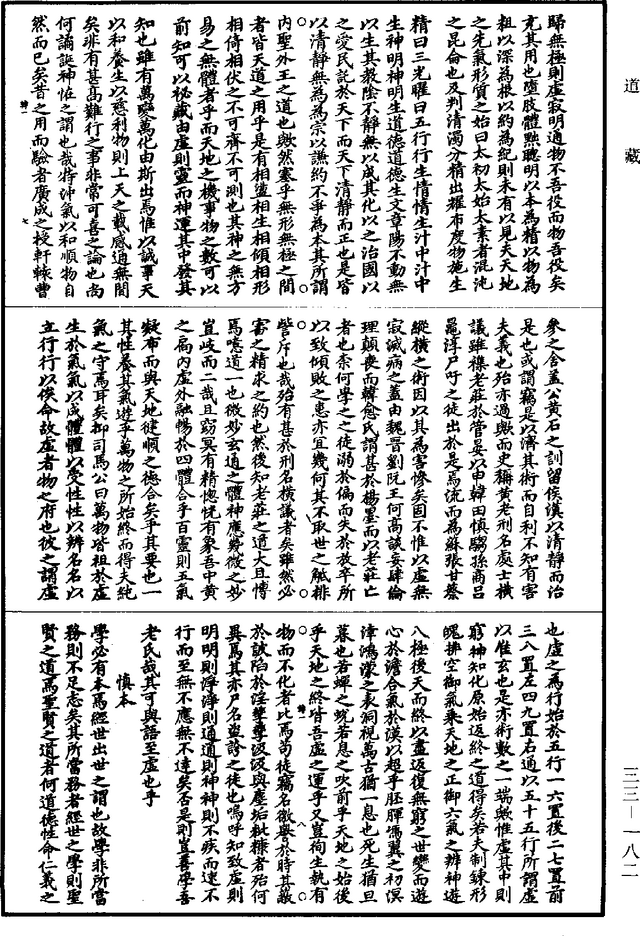 道藏
歸無極則虛寂明通物不吾役而物吾役矣
充其用也墮肢體黜聰明以本為精以物為
粗以深為根以約為紀則未有以見天天地
之先氣形質之始曰太初太始太素者混沌
之昆侖也及判清濁分精出耀布度物施生
精曰三光曜曰五行行生情情生汁中汁中
生神明神明生道德道德生文章陽不動無
以生其教陰不靜無以成其化以之治國以
之愛民託於天下而天下清靜而正也是皆
以清靜無為為宗以謙約不爭為本其所謂
內聖外王之道也歟然塞乎無形無極之間
者皆天道之用乎是有相盪相生相傾相形
相倚相伏之不可齊不可測也其神之無方
易之無體者乎而天地之機事物之數可以
前知可以秘藏由虛則靈而神運其中發其
知也雖有萬變萬化由斯出焉惟以誠事天
以和養生以慈利物則上天之載感通無間
矣非有甚高難行之事非常可喜之論也尚
何譎誕神怪之謂也哉特沖氣以和順物自
然而已矣昔之用而驗者廣成之授軒轅曹
參之舍蓋公黃石之訓留侯漢以清靜而治
是也或謂竊是以濟其術而自利不知有害
夫義也殆亦過歟而史稱黃老刑名處士橫
議雖襍老莊於管晏以申韓田慎騶孫商呂
鼂淳尸吁之徒出於是焉流而為蘇張甘蔡
縱橫之術因以其為害慘矣固不惟以虛無
寂滅病之蓋由魏晉劉阮王何高談妄肆倫
理顛喪而韓愈氏謂甚於楊墨而以老莊亡
者也柰何學之之徒溺於偏而失於放卒所
以致傾敗之患亦宜幾何其不取世之觝排
訾斥也哉殆有甚於刑名橫議者矣雖然必
審之精求之約也然後知老莊之道大且博
焉噫道一也微妙玄通之體神應幾微之妙
豈歧而二哉且窈冥有精惚恍有象吾中黃
之扃內虛外融暢於四體合乎百靈則五氣
凝布而與天地健順之德合矣乎其要也一
其性養其氣遊乎萬物之所始終而得夫純
氣之守焉耳矣抑司馬公曰萬物皆祖於虛
生於氣氣以成體體以受性性以辨名名以
立行行以俟命故虛者物之府也彼之謂虛
也虛之為行始於五行一六置後二七置前
三八置左四九置右通以五十五行所謂虛
以准玄也是亦術數之一端歟惟虛其中則
窮神知化原始返終之道得矣若夫制鍊形
魄排空御氣乘天地之正御六氣之辨神遊
八極後天而終以盡返復無窮之世變而遊
心於澹合氣於漠以超乎胚腪馮翼之初溟
涬鴻濛之表洞視萬古猶一息也死生猶旦
暮也若蟬之蛻若息之吹前乎天地之始後
乎天地之終皆吾虛之運乎又豈徇生執有
物而不化者比焉苟徒竊名徼譽於時其蔽
於詖陷於淫孽孽汲汲與塵垢秕糠者殆何
異焉其亦尸名盜誇之徒也嗚呼知致虛則
明明則淨淨則通通則神神則不疾而速不
行而至無不應無不達矣否是則豈善學吾
老氏哉其可與語至虛也乎
慎本
學必有本焉經世出世之謂也故學非所當
務則不足志矣其所當務者經世之學則聖
賢之道焉聖賢之道者何道德性命仁義之
三三—一八二